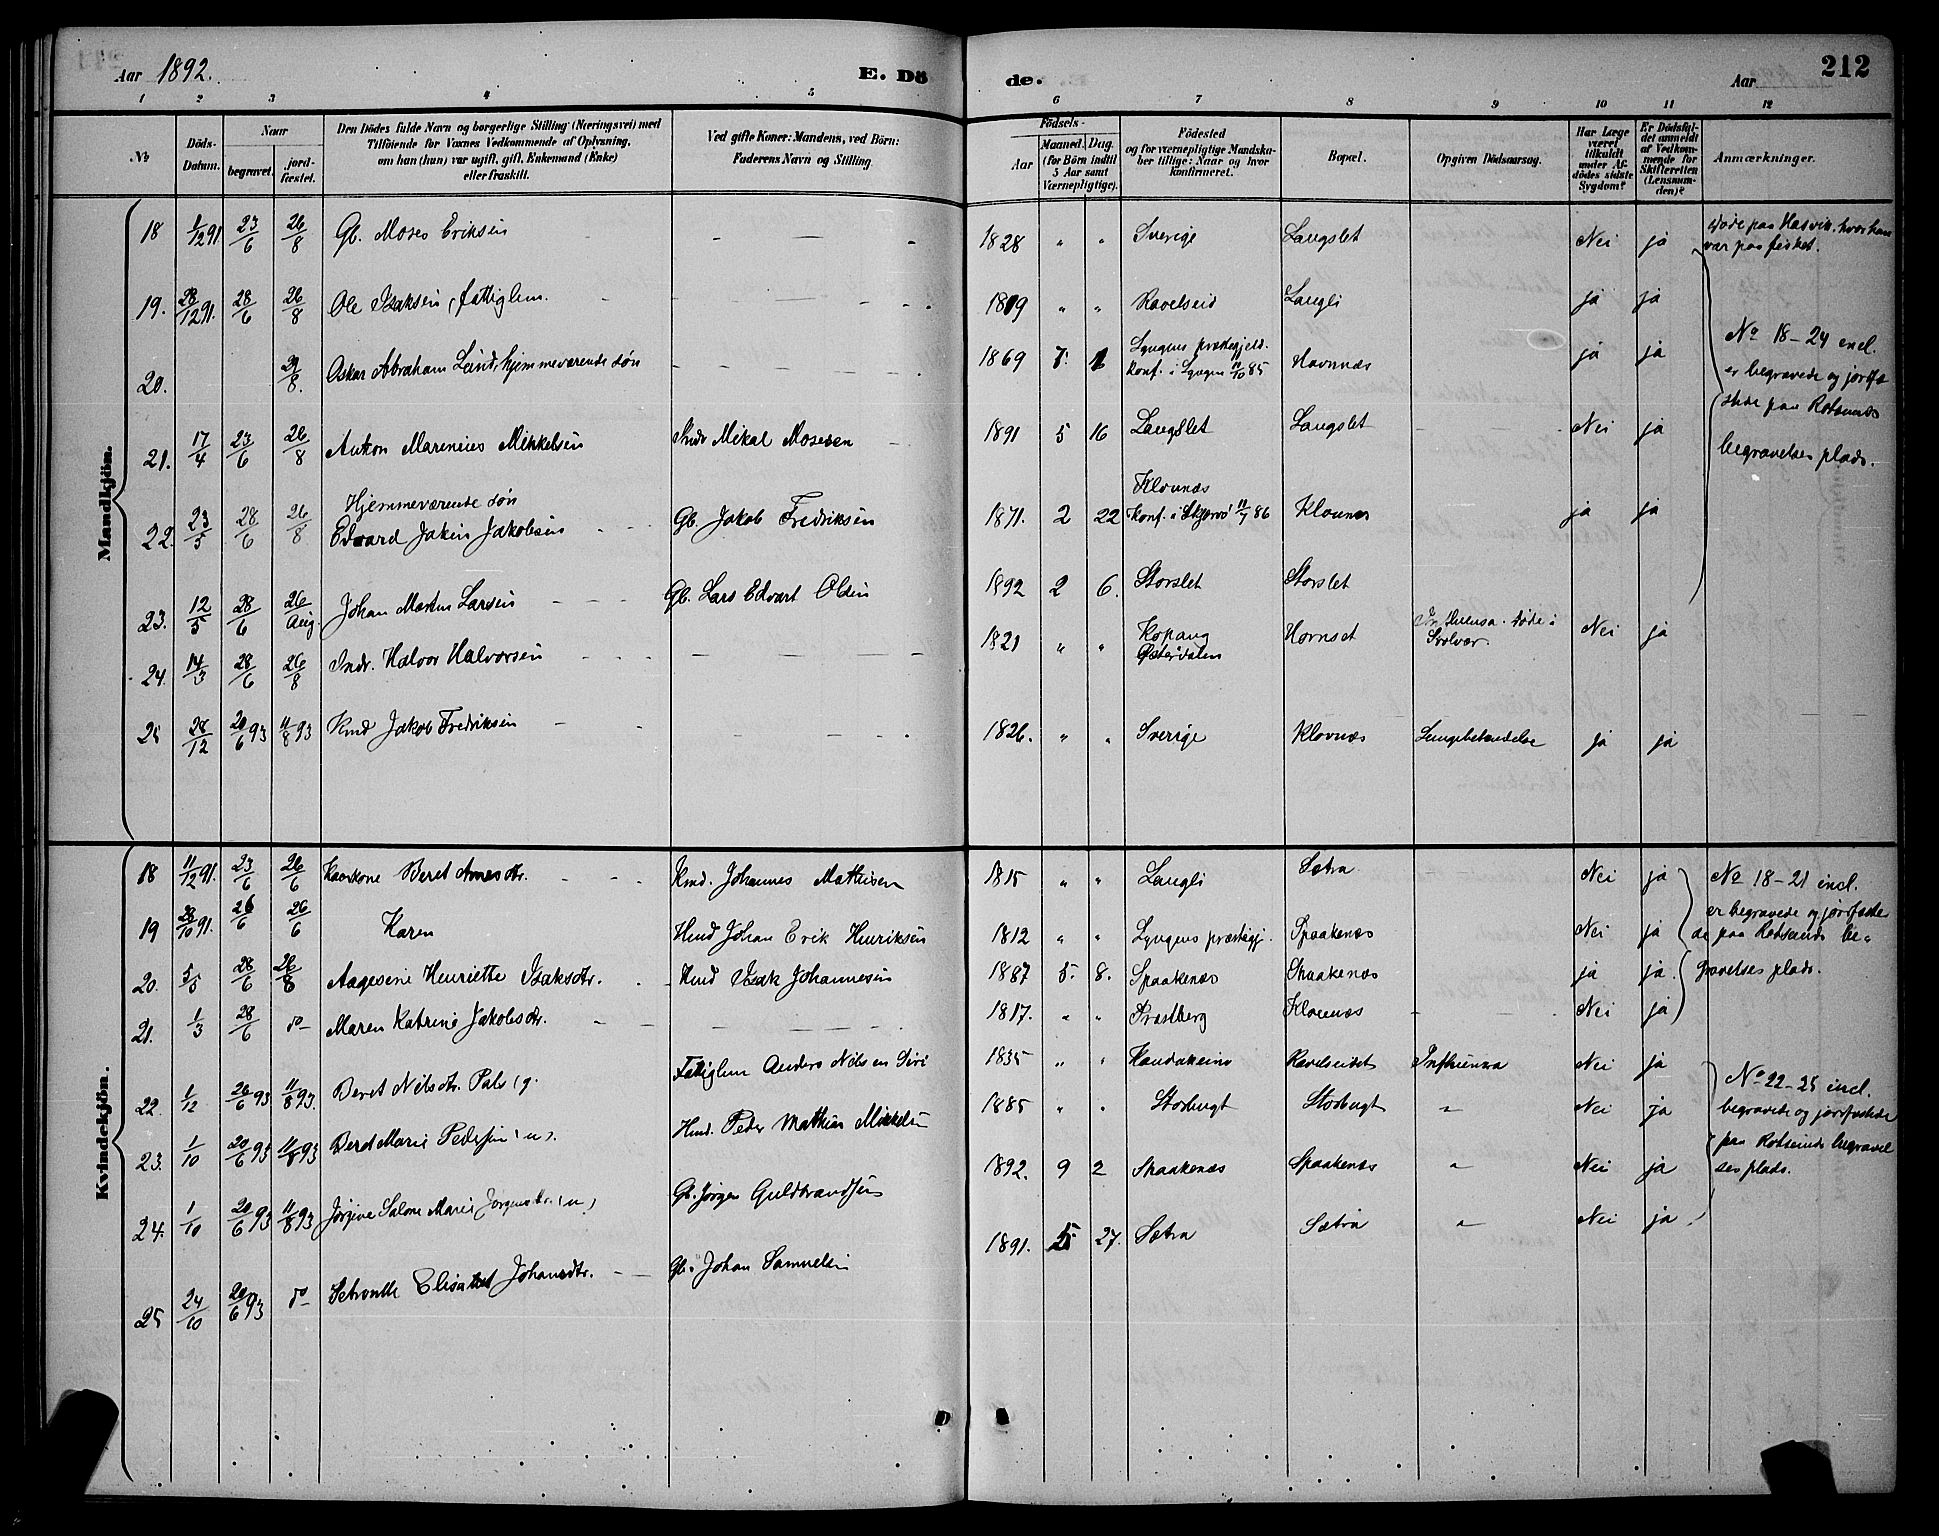 Aar 1892. E. Dö de. Aar 212
1 2 3 4 5 6 7 8 9 10 11 12
No
Döds-
Datum.
Naar
begravet.
jord-
fæstet.
Den Dödes fulde Navn og borgerlige Stilling (Næringsvei) med
Tilföiende for Voxnes Vedkommende af Oplysning,
om han (hun) var ugift, gift, Enkemand (Enke)
eller fraskilt.
Ved gifte Koner: Mandens, ved Börn:
Faderens Navn og Stilling.
Födsels-
Aar
Maaned. Dag.
(for Börn indtil
5 Aar samt
Værnepligtige).
Födested
og for værnepligtige Mandska-
ber tillige: Naar og hvor
konfirmeret.
Bopæl.
Opgiven Dödsaarsag.
Har Læge
været
tilkaldt
under Af-
dödes sidste
Sygdom?
Er Dödsfal-
det anmeldt
af Vedkom-
mende for
Skifteretten
(Lensman-
den)?
Anmærkninger.
Mandkjön.
18 1/12 91 23/6 26/8 Gb. Moses Eriksen 1828 " " Sverige Langslet Nei ja døde paa Hasvik, hvor han
var paa fisket.
19. 28/12 91. 28/6 26/8 Ole Isaksen, fattiglem. 1819 " " Ravelseid Langli ja ja
20. 8. Oskar Abraham Lund, hjemmeværende søn 1869 7. 1 Lyngens præstegjeld. Konf. i Lyngen 11/10 85 Havnnæs ja ja
No 18-24 incl.
er begravede og jordfæ
stede paa Rotsunds
begravelses plads.
21. 17/4 23/6 26/8 Anton Marenius Mikkelsen Indr Mikal Mosesen 1891 5 16 Langslet Langslet Nei ja
22. 23/5 28/6 26/8 Hjemmeværende søn
Edvard Jakin Jakobsen Gb. Jakob Fredriksen 1871. 2 22 Klovnæs
Konf. i Skjervø 11/7 86 Klovnæs ja ja
23. 12/5 28/6 26/Aug. Johan Morten Larsen Gb. Lars Edvart Olsen 1892 2 6. Storslet Storslet
24. 14/3 28/6 26/8 Indr. Halvor Halvorsen 1821 " " Kopang
Østerdalen Hornset Influensa. døde i
Svolvær. Nei ja
25 28/12 20/6 93 11/8 93 Kmd Jakob Fredriksen 1826. " " Sverige Klovnæs Lungebetændelse ja ja
Kvindekjön.
18 11/12 91. 23/6 26/6 Kaarkone Beret Arnesdtr. Kmd. Johannes Mathisen 1815 " " Langli Sætra Nei ja
No 18-21 incl.
er begravede og jordfæste
de paa Rotsunds be-
gravelses plads.
19 28/10 91. 26/6 26/6 Karen Hmd Johan Erik Henriksen 1812 " " Lyngens præstegj. Spaakenæs Nei ja
20. 5/5 28/6 26/8 Aagesine Henriette Isaksdtr. Hmd Isak Johannesen 1887 5. 8. Spaakenæs Spaakenæs ja ja.
21. 1/3 28/6 do Maren Katrine Jakobsdtr. 1817. " " Klovnæs Nei ja
22. 1/12 20/6 93 11/8 93. Beret Nilsdtr. Pals (g. Fattiglem Anders Nilsen Siri 1835 " " Kautokeino Ravelseidet Influensa Nei ja
No 22-25 incl.
begravede og jordfæstede
paa Rotsunds begravel
ses plads.
23. 1/10 20/6 93 11/8 93 Beret Marie Pedersen (u). Hmd. Peder Mathias Mikkelsen 1885 " " Storbugt Storbugt " Nei ja
24. 1/10 20/6 93 11/8 93 Salone Marie Jørgensdtr. (u) Gb. Jørgen Guldbrandsen 1892. 9 2 Spaakenæs Spaakenæs " Nei ja
25 24/10 20/6 93 do Elisabet Johansdtr. Gb. Johan Samuelsen 1891. 5 27. Sætra Sætra " Nei ja